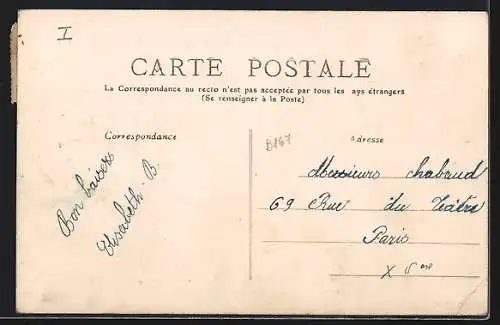 I
CARTE POSTALE
La Correspondance au recto n'est pas acceptée par tous les ays étrangers
(Se renseigner à la Poste)
Correspondance
B167
Adresse
Bon baisers
Elisabeth. B.
Messieurs Chabaud
69 Rue du Téâtre
Paris
X